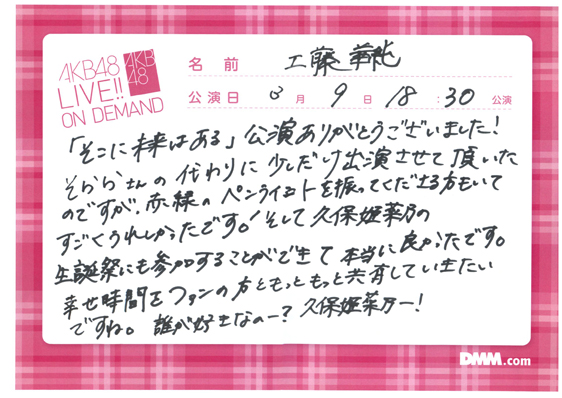 AKB48
LIVE!!
ON DEMAND
AKB
48
名前 工藤華純
公演日 3月9日 18:30 公演
「そこに未来はある」公演ありがとうございました!
そららさんの代わりに少しだけ出演させて頂いた
のですが、赤緑のペンライトを振ってくださる方もいて
すごくうれしかったです。そして久保姫菜乃の
生誕祭にも参加することができて本当に良かったです。
幸せ時間をファンの方ともっともっと共有していきたい
ですね。誰が好きなのー?久保姫菜乃ー!
DMM.com